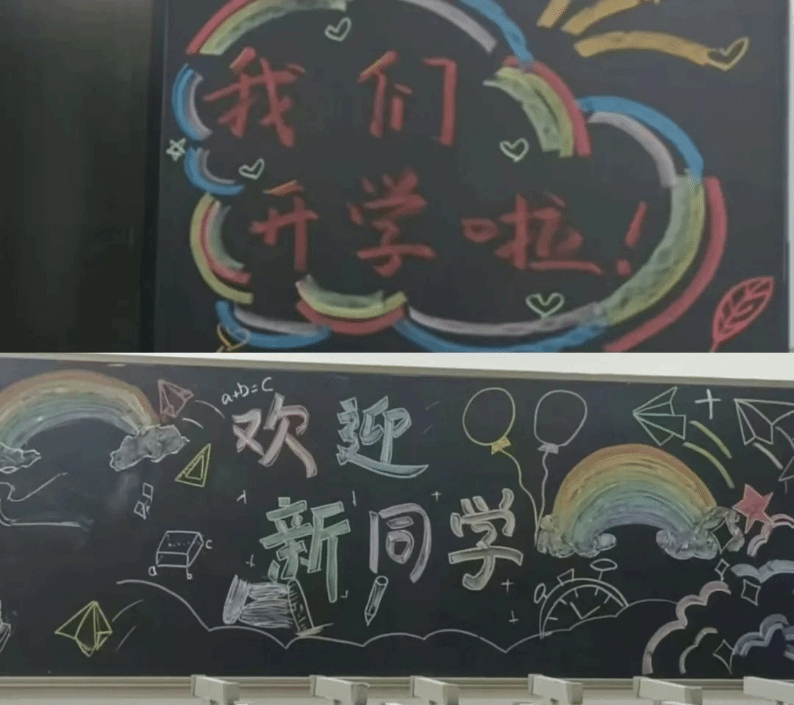 我们
开学啦！
a+b=c
欢迎
新同学
c